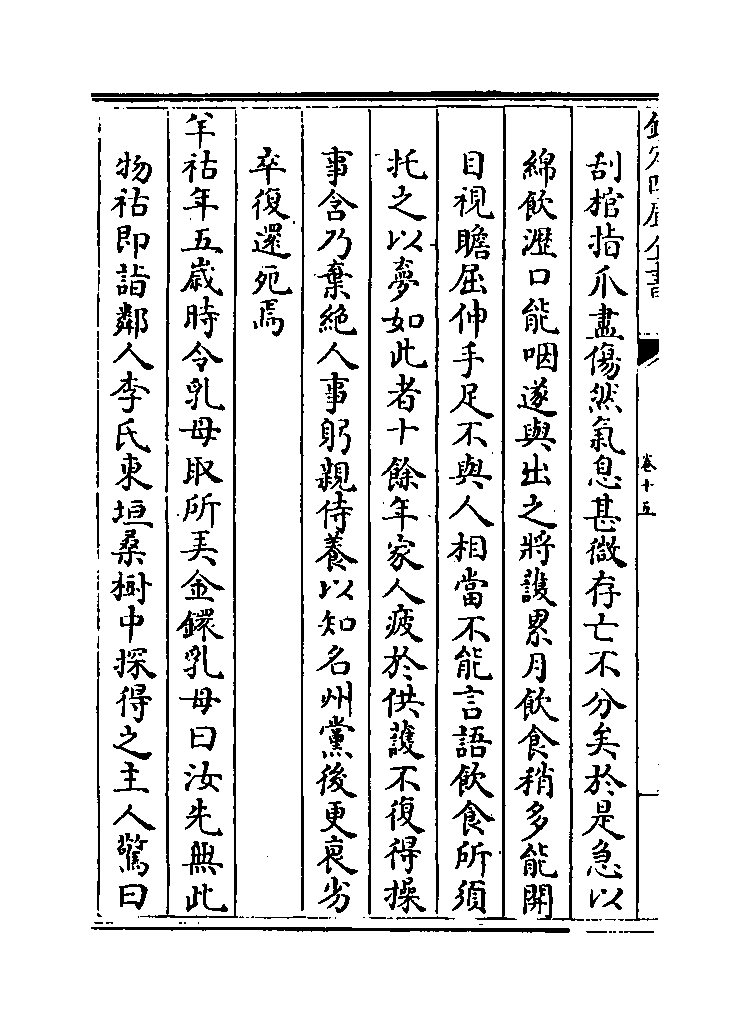 欽定四庫全書
卷十五
刮棺指爪盡傷然氣息甚微存亡不分矣於是急以
綿飲瀝口能咽遂與出之將護累月飲食稍多能開
目視瞻屈伸手足不與人相當不能言語飲食所須
托之以夢如此者十餘年家人疲於供護不復得操
事含乃棄絶人事躬親侍養以知名州黨後更衰劣
卒復還死焉
羊祜年五歲時令乳母取所弄金鐶乳母曰汝先無此
物祜即詣鄰人李氏東垣桑樹中探得之主人驚曰